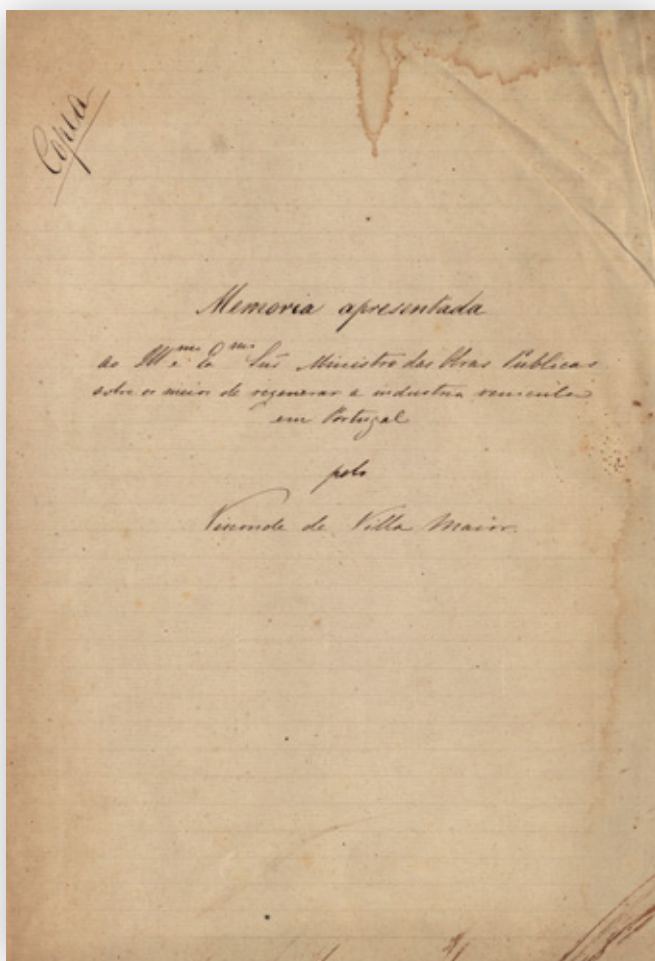 Copia
Memoria apresentada
ao Ill.mo e Ex.mo Snr. Ministro das Obras Publicas
sobre os meios de regenerar a industria
em Portugal
pelo
Visconde de Villa Maior.